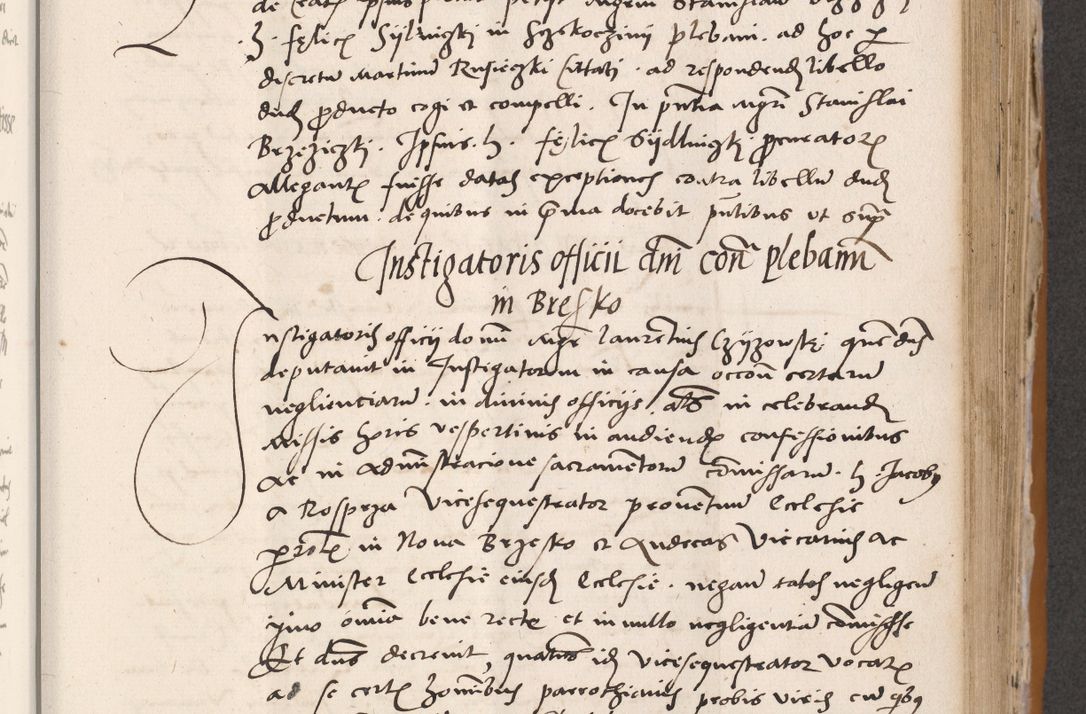 h. felicē Sijlnigkj in Sczekoczinij plebanū. ad hoc p
discretū Martinū Rusieczki citatū. ad respondendū libello
dudū producto cogi et compelli. In pūtia Mgri Stanislai
Brzeziczkj. Ipsius. h. felicē Sijdlnigkj procuratorē
Allegantē fuisse datas exceptiones contra libellū dudū
productum. de quibus in prima docebit pñtibus ut supra
Instigatoris officii dñi cont plebanum
in Bresko
Instigatoris officij domini Mgr laurentius Czijzowskj quē dñs
deputauit in Instigatorem in causa occōn certarū
negligentiarū in diuinis officijs. als in celebrandū
Missis horis vespertinis in audiendū confessionibus
Ac in Administracione sacramentorū cōmissarū. h. Jacobus
a Rosprza Vicesequestrator prouentuū Ecclesie
proch in Noua Brzesko et Andreas Vicarius ac
Minister Ecclesie eiusdē Ecclesie. negauit tales negligen
ymo omia bene recte et in nullo negligentiā cōmisisse
Et dñs decreuit, quatenus idē Vicesequestrator vocatū
ad se certē hominibus parrochianis probis viris cū quibus